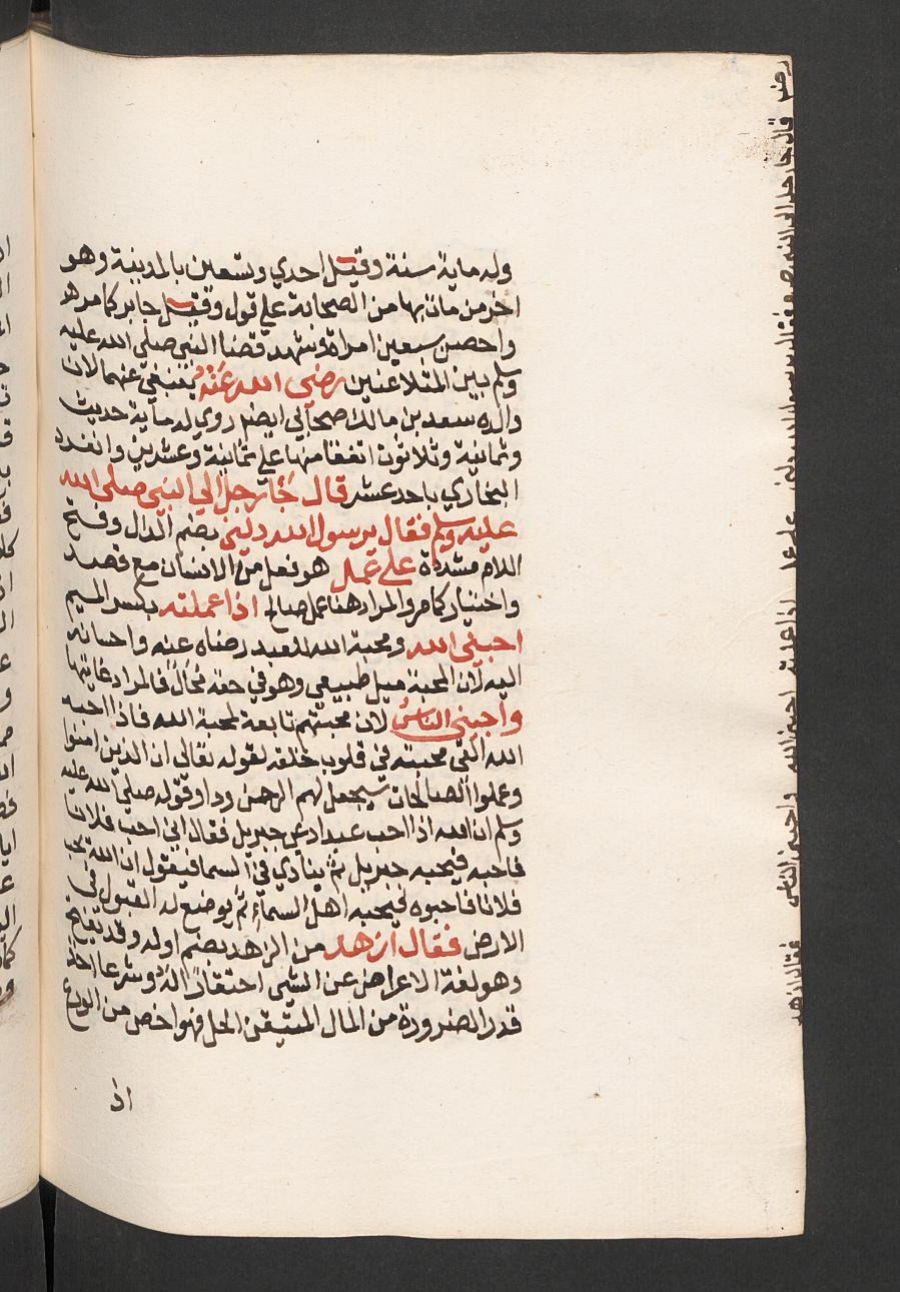 وله ماية سنة وقيل احدي وتسعين بالمدينة وهو
اخر من مات بها من الصحابة علي قول وقيل جابر كما مر
واحصن سبعين امراة وشهد قضا النبي صلي الله عليه
وسلم بين المتلاعنين رضي الله عنه ينبغي عنهما لان
والده سعد بن مالك صحابي ايضا روي له ماية حديث
وثمانية وثلاثون اتفقا منها علي ثمانية وعشرين وانفرد
البخاري باحد عشر قال جا رجل الي النبي صلي الله
عليه وسلم فقال يرسول الله دلني بضم الدال وفتح
اللام مشددة علي عمل هو فعل من الانسان مع قصد
واختيار كما مر والمراد هنا عمل صالح اذا عملته بكسر الميم
احبني الله ومحبة الله للعبد رضاه عنه واحسانه
اليه لان المحبة ميل طبيعي وهو في حقه محال فالمراد غايتها
واحبني الناس لان محبتهم تابعة لمحبة الله فاذا احبه
الله القي محبته في قلوب خلقه لقوله تعالي ان الذين امنوا
وعملوا الصالحات سيجعل لهم الرحمن ودا وقوله صلي الله عليه
وسلم ان الله اذا احب عبدا دعي جبريل فقال اني احب فلانا
فاحبه فيحبه جبريل ثم ينادي في السما فيقول ان الله يحب
فلانا فاحبوه فيحبه اهل السماء ثم يوضع له القبول في
الارض فقال ازهد من الزهد بضم اوله وقد يفتح
وهو لغة الاعراض عن الشي احتقارا له وشرعا اخذ
قدر الضرورة من المال المتيقن الحل فهو اخص من الورع
اذ
قال جا رجل الي النبي فقال يرسول الله دلني علي عمل اذا عملته احبني الله واحبني الناس فقال ازهد